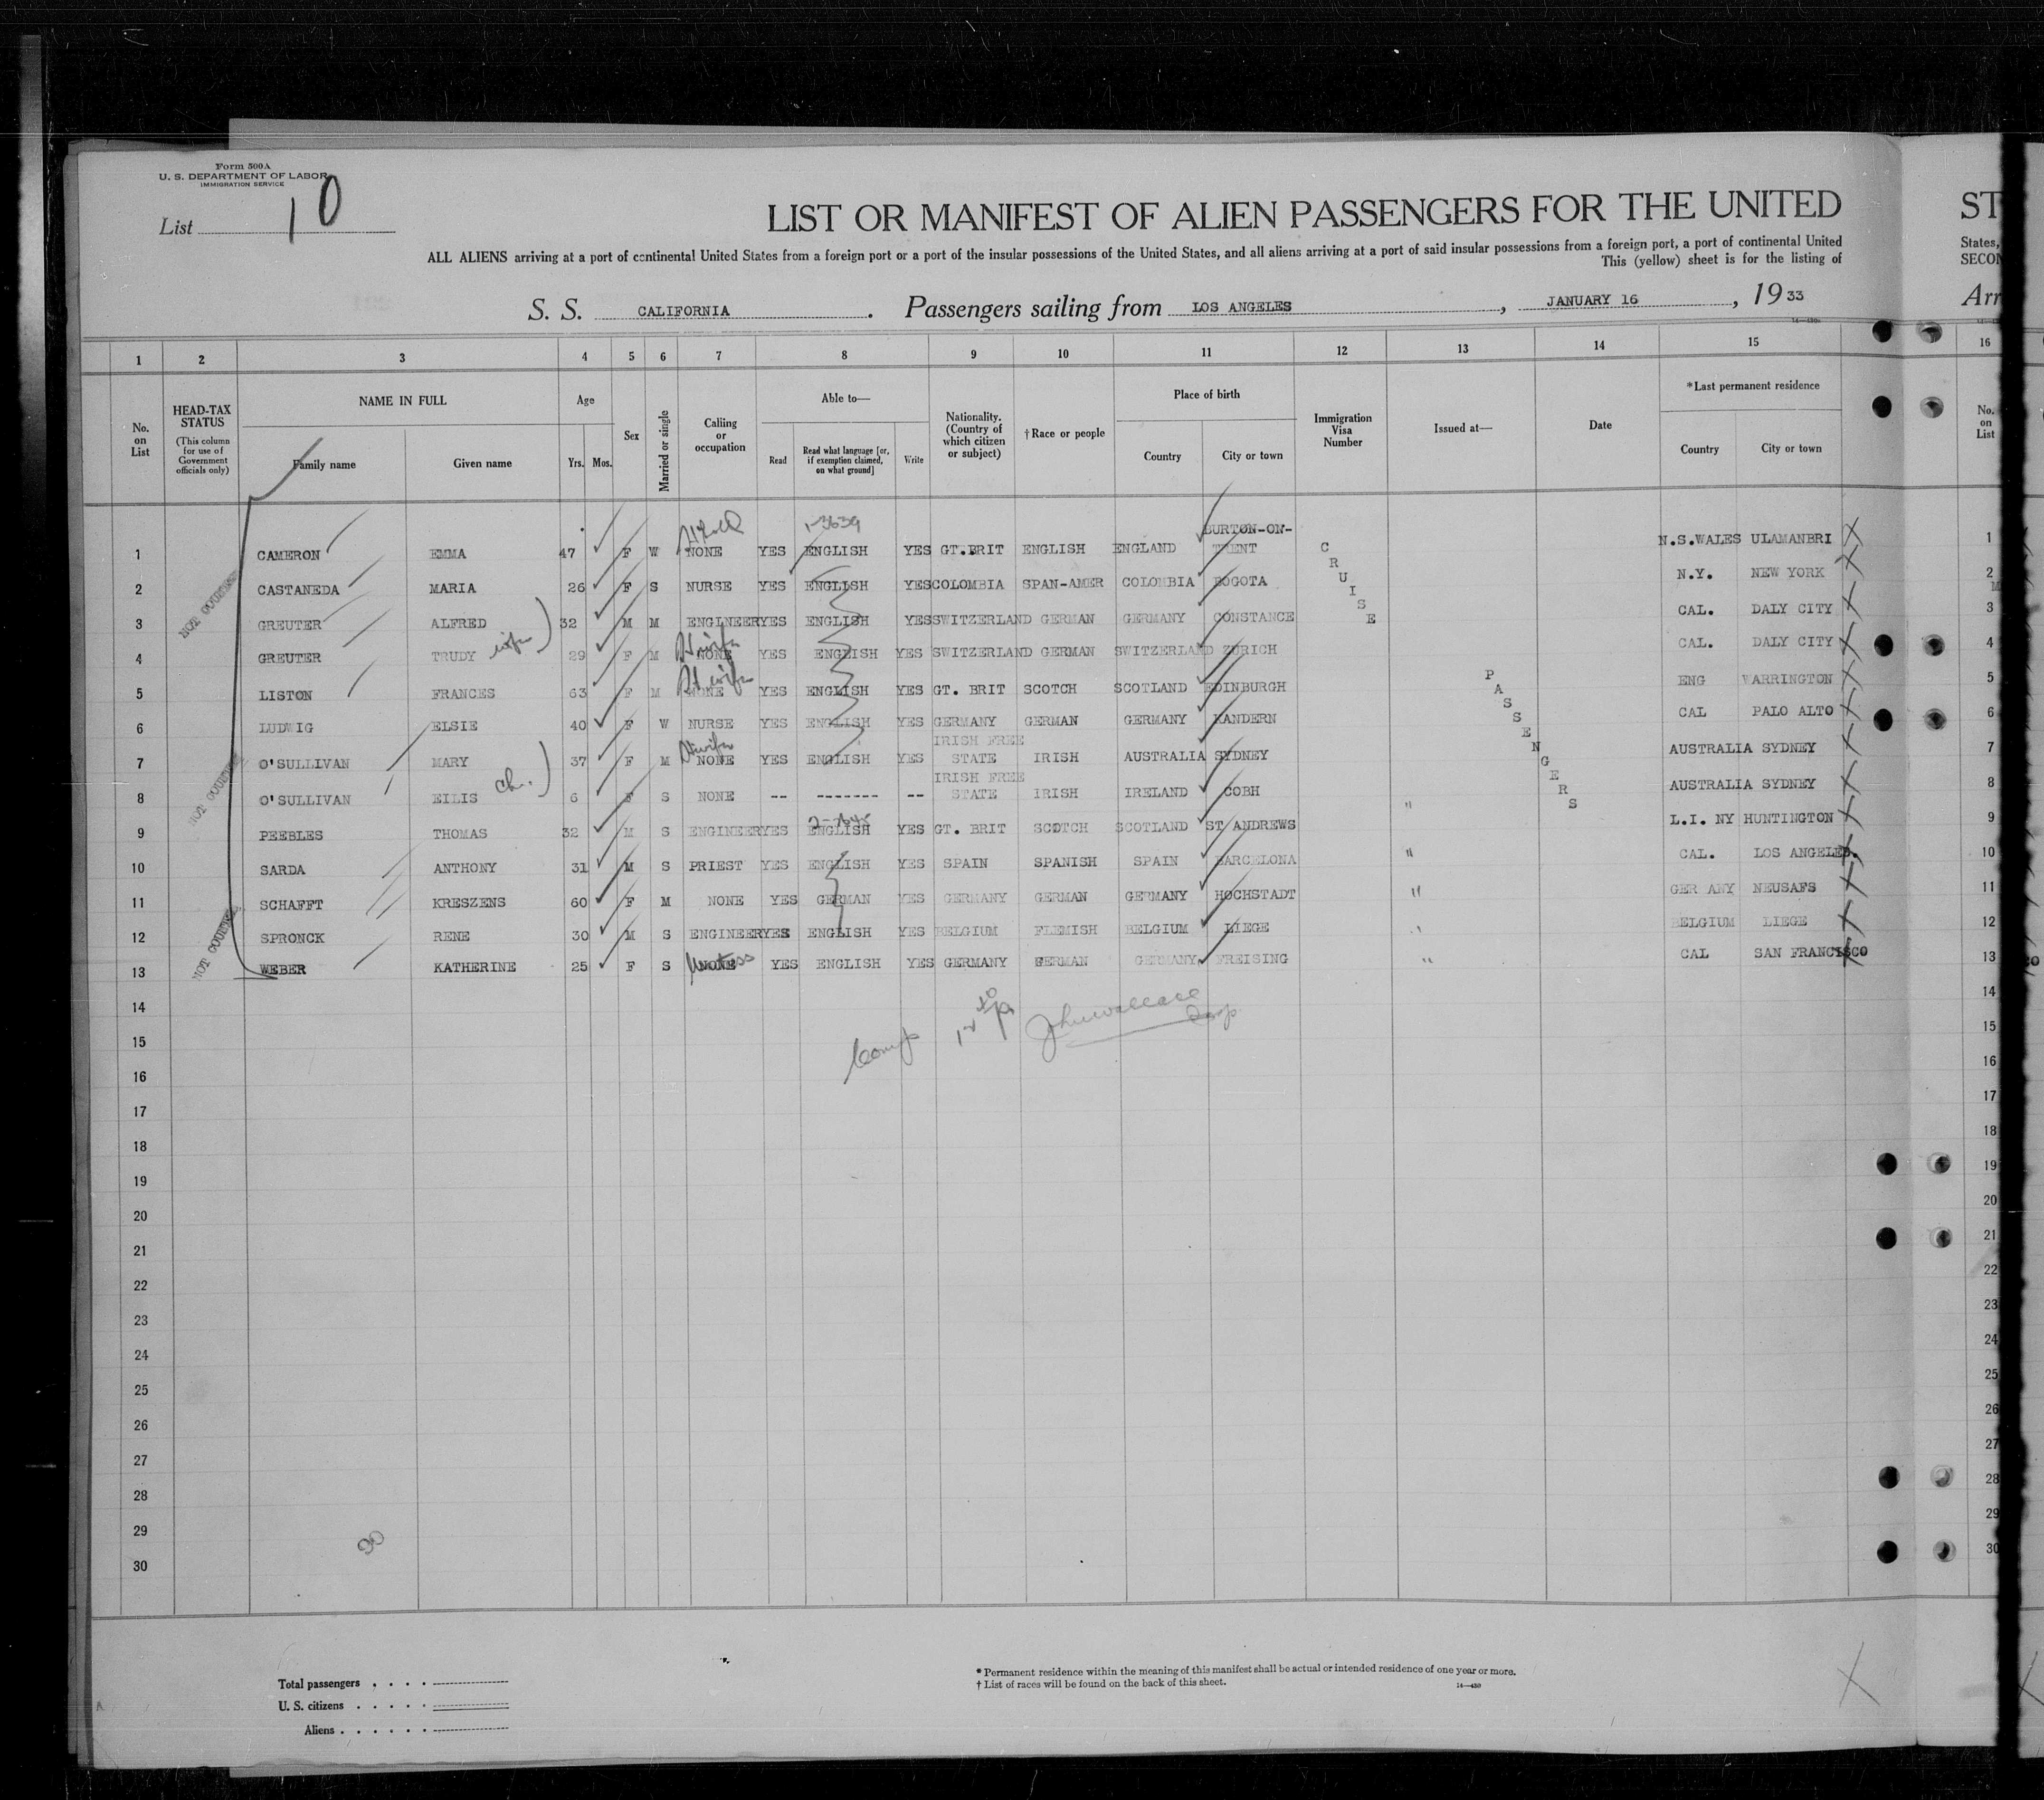 Form 500A
U. S. DEPARTMENT OF LABOR
IMMIGRATION SERVICE
List 10
LIST OR MANIFEST OF ALIEN PASSENGERS FOR THE UNITED
ST
ALL ALIENS arriving at a port of continental United States from a foreign port or a port of the insular possessions of the United States, and all aliens arriving at a port of said insular possessions from a foreign port, a port of continental United
States,
This (yellow) sheet is for the listing of
SECON
S. S. CALIFORNIA. Passengers sailing from LOS ANGELES, JANUARY 16, 1933
Arr
14—430
1 2 3 4 5 6 7 8 9 10 11 12 13 14 15 16
No. on List
HEAD-TAX STATUS
(This column for use of Government officials only)
NAME IN FULL
Family name Given name
Age
Yrs. Mos.
Sex
Married or single
Calling or occupation
Able to—
Read
Read what language [or, if exemption claimed, on what ground]
Write
Nationality. (Country of which citizen or subject)
†Race or people
Place of birth
Country City or town
Immigration Visa Number
Issued at—
Date
*Last permanent residence
Country City or town
No. on List
1-3639
1 CAMERON EMMA 47 F W NONE YES ENGLISH YES GT.BRIT ENGLISH ENGLAND BURTON-ON-TRENT N.S.WALES ULAMANBRI 1
2 CASTANEDA MARIA 26 F S NURSE YES ENGLISH YES COLOMBIA SPAN-AMER COLOMBIA BOGOTA N.Y. NEW YORK 2
3 GREUTER ALFRED 32 M M ENGINEER YES ENGLISH YES SWITZERLAND GERMAN GERMANY CONSTANCE CAL. DALY CITY 3
4 GREUTER TRUDY wife 29 F M NONE Hwife YES ENGLISH YES SWITZERLAND GERMAN SWITZERLAND ZURICH CAL. DALY CITY 4
5 LISTON FRANCES 63 F M NONE Hwife YES ENGLISH YES GT. BRIT SCOTCH SCOTLAND EDINBURGH ENG WARRINGTON 5
6 LUDWIG ELSIE 40 F W NURSE YES ENGLISH YES GERMANY GERMAN GERMANY KANDERN CAL PALO ALTO 6
7 O'SULLIVAN MARY 37 F M NONE Hwife YES ENGLISH YES IRISH FREE STATE IRISH AUSTRALIA SYDNEY AUSTRALIA SYDNEY 7
8 O'SULLIVAN EILIS ch. 6 F S NONE -- ------- -- IRISH FREE STATE IRISH IRELAND COBH AUSTRALIA SYDNEY 8
9 PEEBLES THOMAS 32 M S ENGINEER YES ENGLISH YES GT. BRIT SCOTCH SCOTLAND ST ANDREWS " L.I. NY HUNTINGTON 9
10 SARDA ANTHONY 31 M S PRIEST YES ENGLISH YES SPAIN SPANISH SPAIN BARCELONA " CAL. LOS ANGELES. 10
11 SCHAFFT KRESZENS 60 F M NONE YES GERMAN YES GERMANY GERMAN GERMANY HOCHSTADT " GER ANY NEUSAFS 11
12 SPRONCK RENE 30 M S ENGINEER YES ENGLISH YES BELGIUM FLEMISH BELGIUM LIEGE " BELGIUM LIEGE 12
13 WEBER KATHERINE 25 F S NONE YES ENGLISH YES GERMANY GERMAN GERMANY FREISING " CAL SAN FRANCISCO 13
CRUISE
PASSENGERS
NOT COUNTED
NOT COUNTED
NOT COUNTED
14 14
John Wallace
Insp
15 15
Comp
16 16
17 17
18 18
19 19
20 20
21 21
22 22
23 23
24 24
25 25
26 26
27 27
28 28
29 29
90
30 30
Total passengers . . . .
U. S. citizens . . . . .
Aliens . . . . . .
* Permanent residence within the meaning of this manifest shall be actual or intended residence of one year or more.
† List of races will be found on the back of this sheet.
14—430